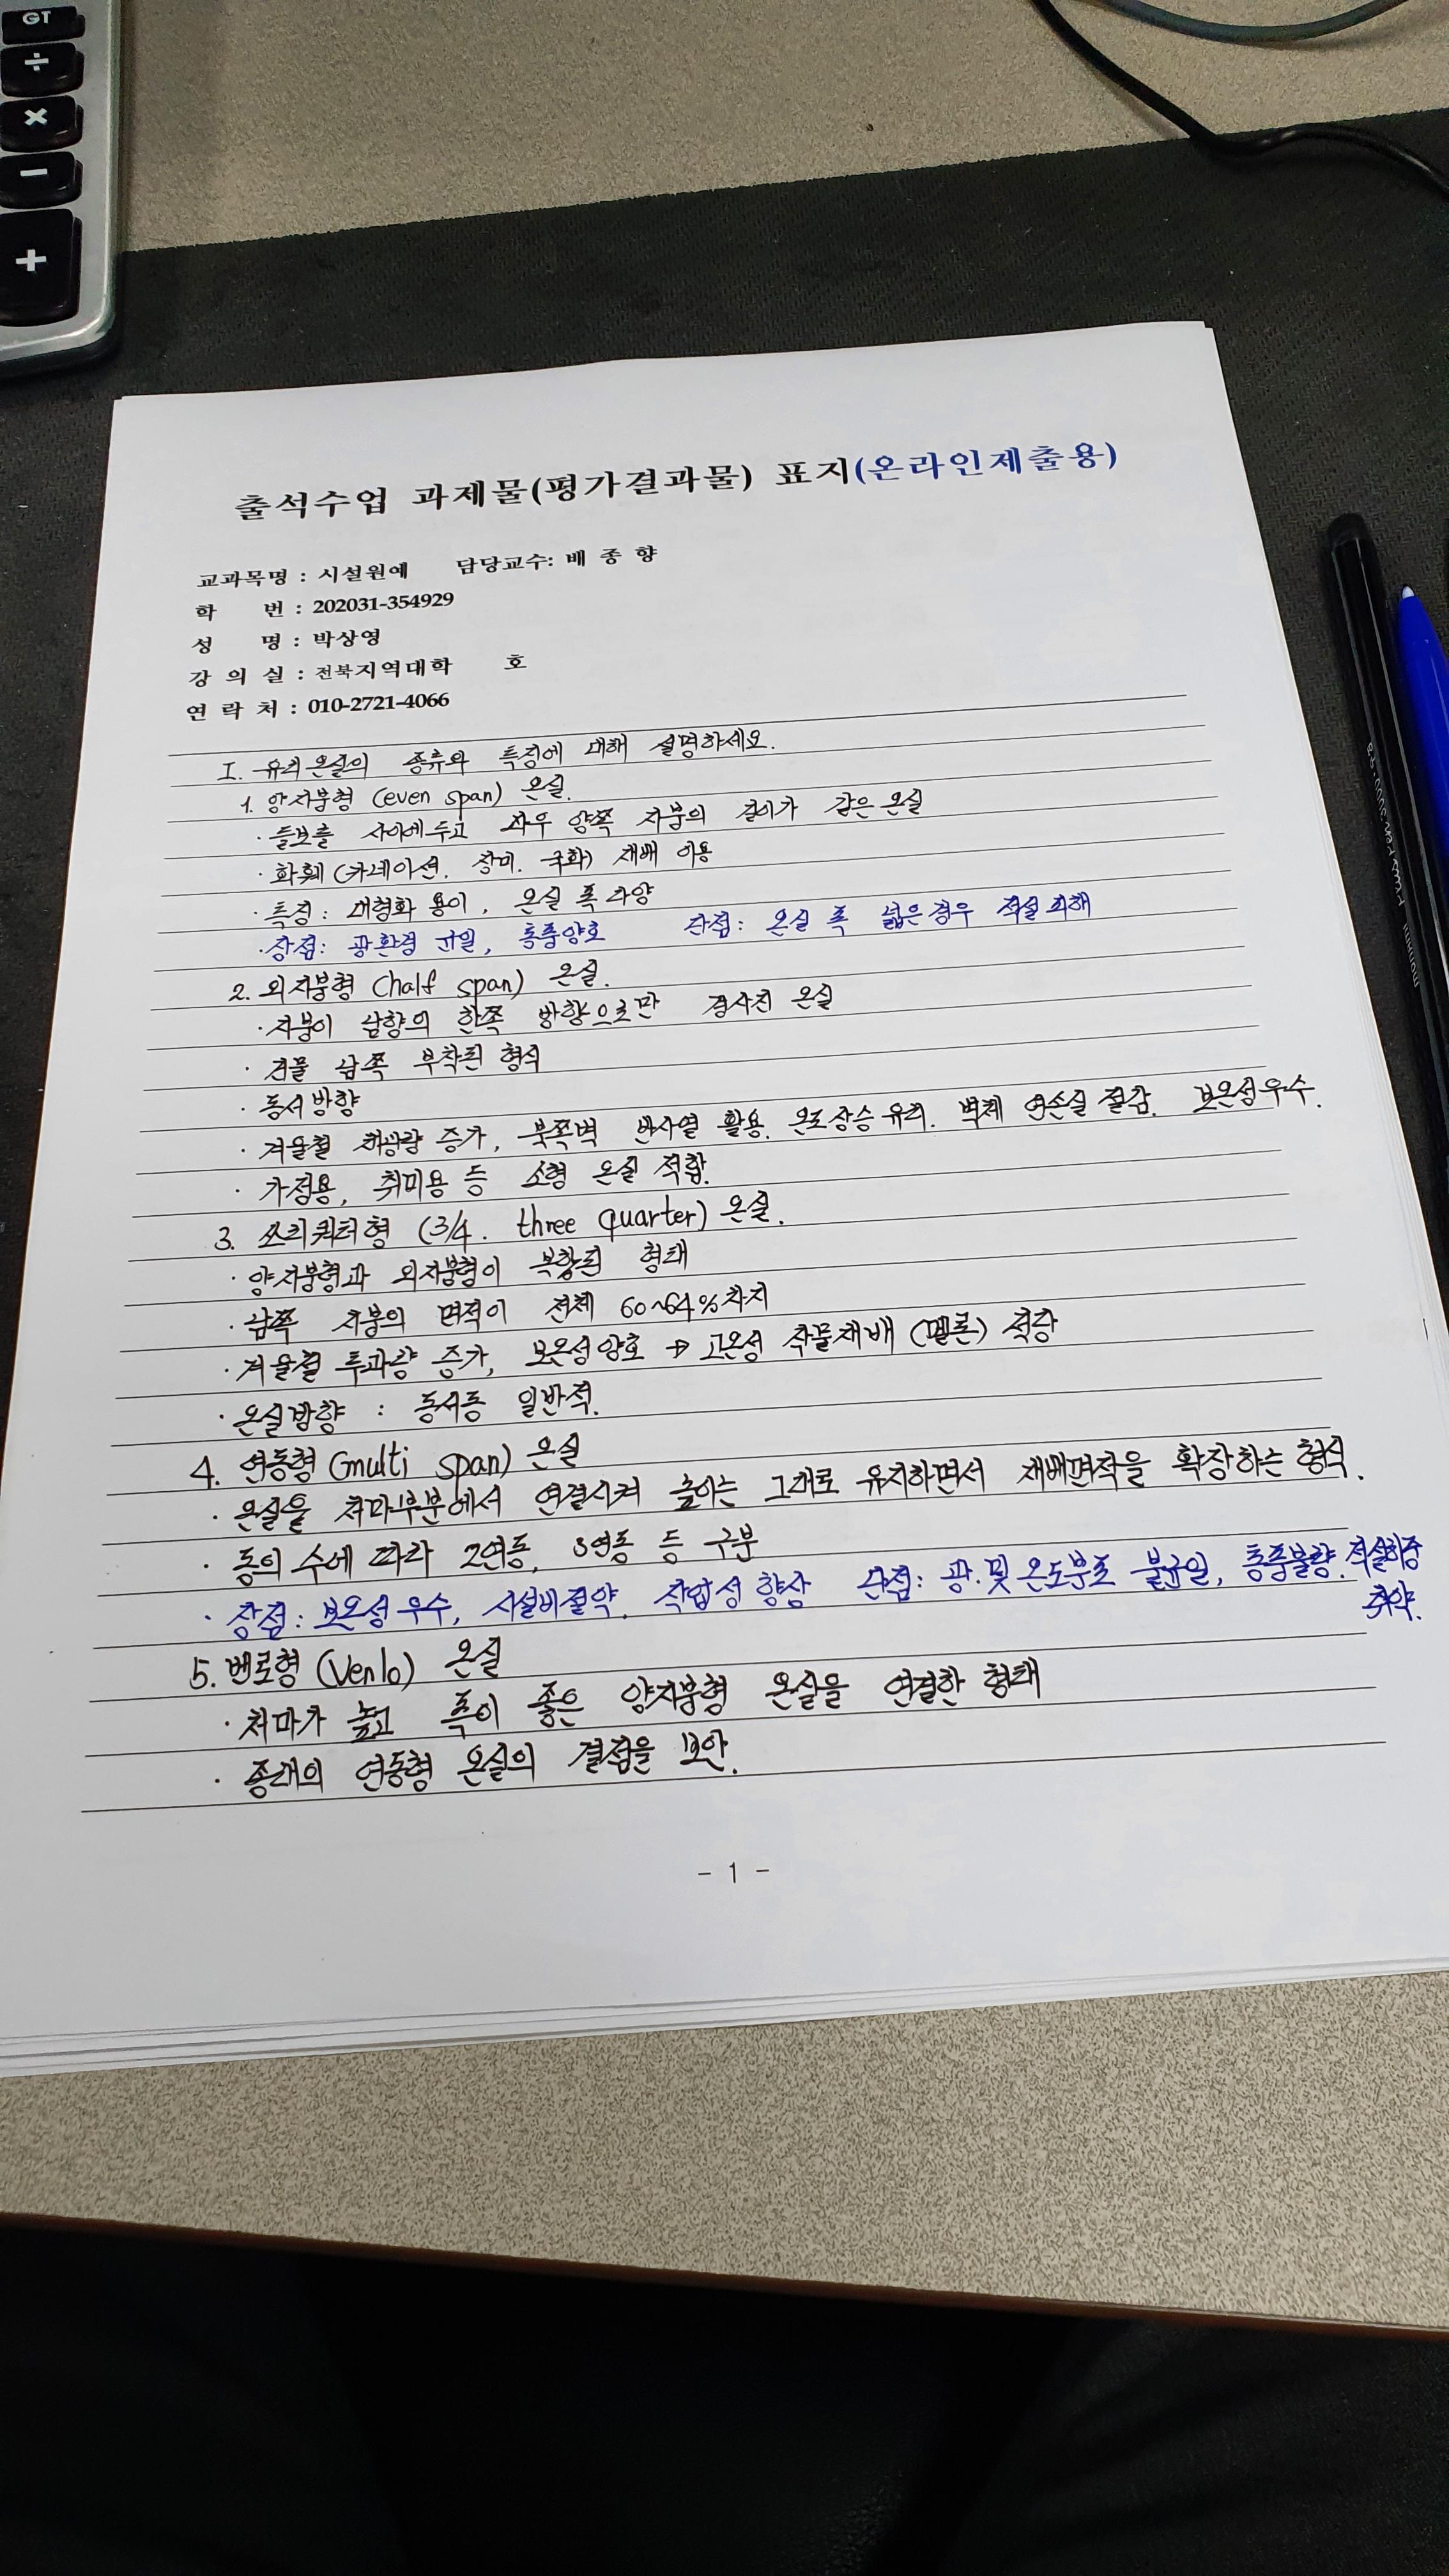 GT
÷
×
−
+
출석수업 과제물(평가결과물) 표지(온라인제출용)
교과목명 : 시설원예 담당교수: 배 종 향
학 번 : 202031-354929
성 명 : 박상영
강 의 실 : 전북지역대학 호
연 락 처 : 010-2721-4066
I. 유리온실의 종류와 특징에 대해 설명하세요.
1. 양지붕형 (even span) 온실.
· 들보를 사이에 두고 좌우 양쪽 지붕의 길이가 같은 온실
· 화훼 (카네이션. 장미. 국화) 재배 이용
· 특징 : 대형화 용이, 온실 폭 다양
· 장점: 광환경 균일, 통풍양호 단점: 온실 폭 넓은경우 적설피해
2. 외지붕형 (half span) 온실.
· 지붕이 남향의 한쪽 방향으로만 경사진 온실
· 건물 남쪽 부착된 형식
· 동서방향
· 겨울철 채광량 증가, 북쪽벽 반사열 활용. 온도상승 유리. 벽체 열손실 절감. 보온성우수.
· 가정용, 취미용 등 소형 온실 적합.
3. 쓰리쿼터형 (3/4. three quarter) 온실.
· 양지붕형과 외지붕형이 복합된 형태
· 남쪽 지붕의 면적이 전체 60~64%차지
· 겨울철 투과량 증가, 보온성양호 → 고온성 작물재배 (멜론) 적당
· 온실방향 : 동서동 일반적.
4. 연동형 (multi span) 온실
· 온실을 처마부분에서 연결시켜 높이는 그대로 유지하면서 재배면적을 확장하는 형식.
· 동의 수에 따라 2연동, 3연동 등 구분
· 장점: 보온성 우수, 시설비절약. 작업성 향상 단점: 광.및 온도분포 불균일, 통풍불량. 적설하중
취약.
5. 벤로형 (Venlo) 온실
· 처마가 높고 폭이 좋은 양지붕형 온실을 연결한 형태
· 종래의 연동형 온실의 결점을 보안.
- 1 -